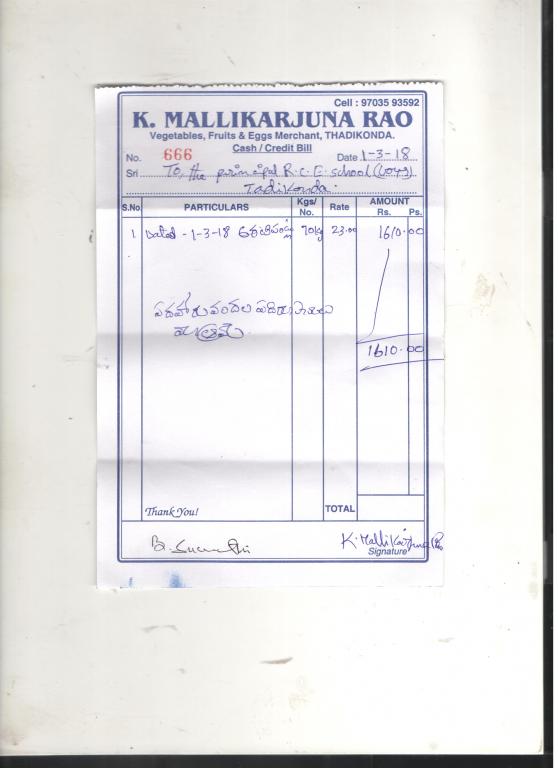 Cell : 97035 93592
K. MALLIKARJUNA RAO
Vegetables, Fruits & Eggs Merchant, THADIKONDA.
Cash / Credit Bill
No. 666 Date 1-3-18
Sri To, the principal R.C.E. school (boys)
Tadikonda.
S.No. PARTICULARS Kgs/No. Rate AMOUNT Rs. Ps.
1 Dated - 1-3-18 అరటిపండ్లు 70kg 23.00 1610.00
పదహారువందల పదిరూపాయలు
మాత్రమే
1610.00
Thank You! TOTAL
K. Mallikarjuna Rao
Signature